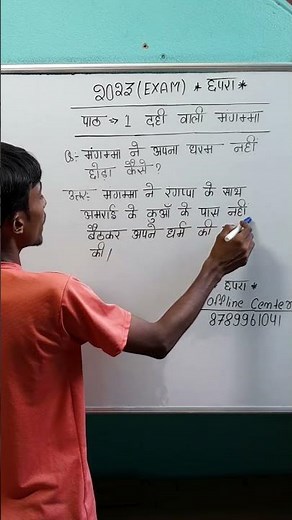 2023 (EXAM) * छपरा *
पाठ → 1 दही वाली मंगम्मा
Q:- मंगम्मा ने अपना धरम नहीं
छोड़ा कैसे ?
उत्तर:- मंगम्मा ने रंगप्पा के साथ
अमराई के कुआँ के पास नहीं
बैठकर अपने धर्म की
की।
* छपरा *
offline Center
8789961041